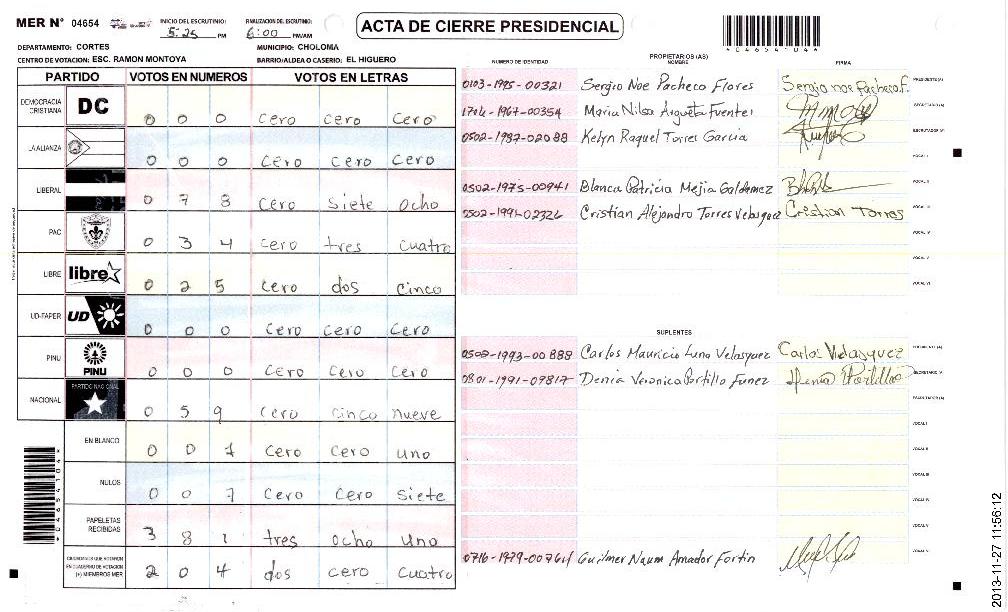 MER N° 04654
INICIO DEL ESCRUTINIO: 5:25 PM
FINALIZACION DEL ESCRUTINIO: 6:00 PM/AM
ACTA DE CIERRE PRESIDENCIAL
DEPARTAMENTO: CORTES
MUNICIPIO: CHOLOMA
CENTRO DE VOTACION: ESC. RAMON MONTOYA
BARRIO/ALDEA O CASERIO: EL HIGUERO
PARTIDO VOTOS EN NUMEROS VOTOS EN LETRAS
DEMOCRACIA CRISTIANA DC 0 0 0 Cero Cero Cero
LA ALIANZA 0 0 0 Cero Cero Cero
LIBERAL 0 7 8 Cero Siete Ocho
PAC 0 3 4 Cero tres Cuatro
LIBRE libre 0 2 5 Cero dos Cinco
UD-FAPER UD 0 0 0 Cero Cero Cero
PINU PINU 0 0 0 Cero Cero Cero
NACIONAL PARTIDO NACIONAL 0 5 9 Cero Cinco nueve
EN BLANCO 0 0 1 Cero Cero uno
NULOS 0 0 7 Cero Cero Siete
PAPELETAS RECIBIDAS 3 8 1 tres ocho uno
CIUDADANOS QUE VOTARON EN CUADERNO DE VOTACION (+) MIEMBROS MER 2 0 4 dos cero Cuatro
NUMERO DE IDENTIDAD
PROPIETARIOS (AS)
NOMBRE
FIRMA
0103-1995-00321 Sergio Noe Pacheco Flores Sergio noe Pacheco F. PRESIDENTE(A)
1704-1967-00354 Maria Nilsa Argueta Fuentes SECRETARIO (A)
0502-1987-02088 Kelyn Raquel Torres Garcia ESCRUTADOR (A)
VOCAL I
0502-1975-00941 Blanca Patricia Mejia Galdamez VOCAL II
0502-1991-02326 Cristian Alejandro Torres Velasquez Cristian Torres VOCAL III
VOCAL IV
VOCAL V
VOCAL VI
SUPLENTES
0502-1993-00888 Carlos Mauricio Luna Velasquez Carlos Velasquez PRESIDENTE (A)
0801-1991-09817 Denia Veronica Portillo Funez Denia Portillo SECRETARIO (A)
ESCRUTADOR (A)
VOCAL I
VOCAL II
VOCAL III
VOCAL IV
VOCAL V
0716-1979-00761 Guilmer Naum Amador Fortin VOCAL VI
04654104
2013-11-27 11:56:12